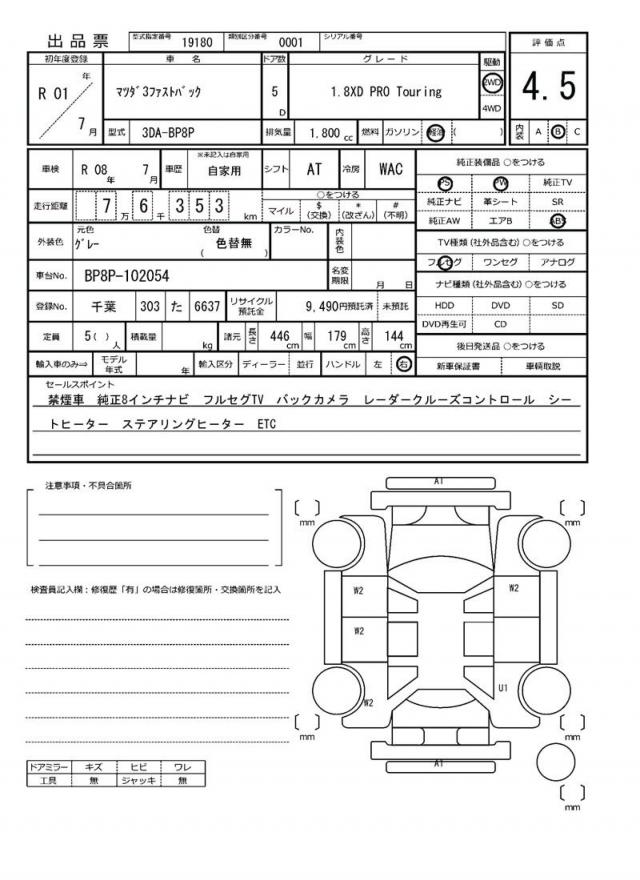 出品票 型式指定番号 19180 類別区分番号 0001 シリアル番号
評価点
4.5
内装 A B C
初年度登録 車名 ドア数 グレード 駆動
R 01 年 7 月 マツダ3ファストバック 5 D 1.8XD PRO Touring 2WD 4WD
型式 3DA-BP8P 排気量 1,800 cc 燃料 ガソリン 軽油 ( )
車検 R 08 年 7 月 車歴 ※未記入は自家用 自家用 シフト AT 冷房 WAC
走行距離 7 万 6 千 3 5 3 km
○をつける
マイル $ (交換) * (改ざん) # (不明)
外装色 元色 グレー 色替 ( 色替無 ) カラーNo. 内装色
車台No. BP8P-102054 名変期限 月 日
登録No. 千葉 303 た 6637 リサイクル預託金 9,490円預託済 未預託
定員 5( ) 人 積載量 kg 諸元 長さ 446 cm 幅 179 cm 高さ 144 cm
輸入車のみ⇒ モデル年式 年 輸入区分 ディーラー 並行 ハンドル 左 右
純正装備品 ○をつける
PS PW 純正TV
純正ナビ 革シート SR
純正AW エアB ABS
TV種類(社外品含む) ○をつける
フルセグ ワンセグ アナログ
ナビ種類(社外品含む) ○をつける
HDD DVD SD
DVD再生可 CD
後日発送品 ○をつける
新車保証書 車輌取説
セールスポイント
禁煙車 純正8インチナビ フルセグTV バックカメラ レーダークルーズコントロール シー
トヒーター ステアリングヒーター ETC
注意事項・不具合箇所
検査員記入欄：修復歴「有」の場合は修復箇所・交換箇所を記入
ドアミラー キズ ヒビ ワレ
工具 無 ジャッキ 無
A1
[ ] mm [ ] mm
W2 W2
W2
W2 U1
[ ] mm [ ] mm
A1
[ ] mm